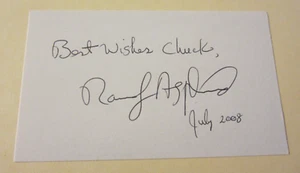 Best Wishes Chuck,
July 2008